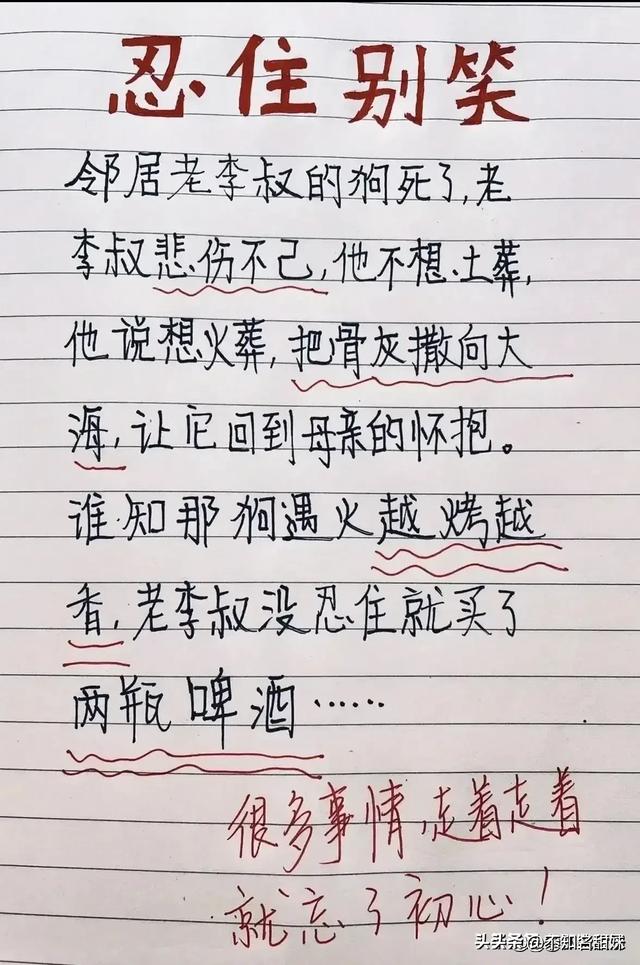 忍住别笑
邻居老李叔的狗死了,老
李叔悲伤不己,他不想土葬,
他说想火葬,把骨灰撒向大
海,让它回到母亲的怀抱。
谁知那狗遇火越烤越
香,老李叔没忍住就买了
两瓶啤酒……
很多事情,走着走着
就忘了初心!